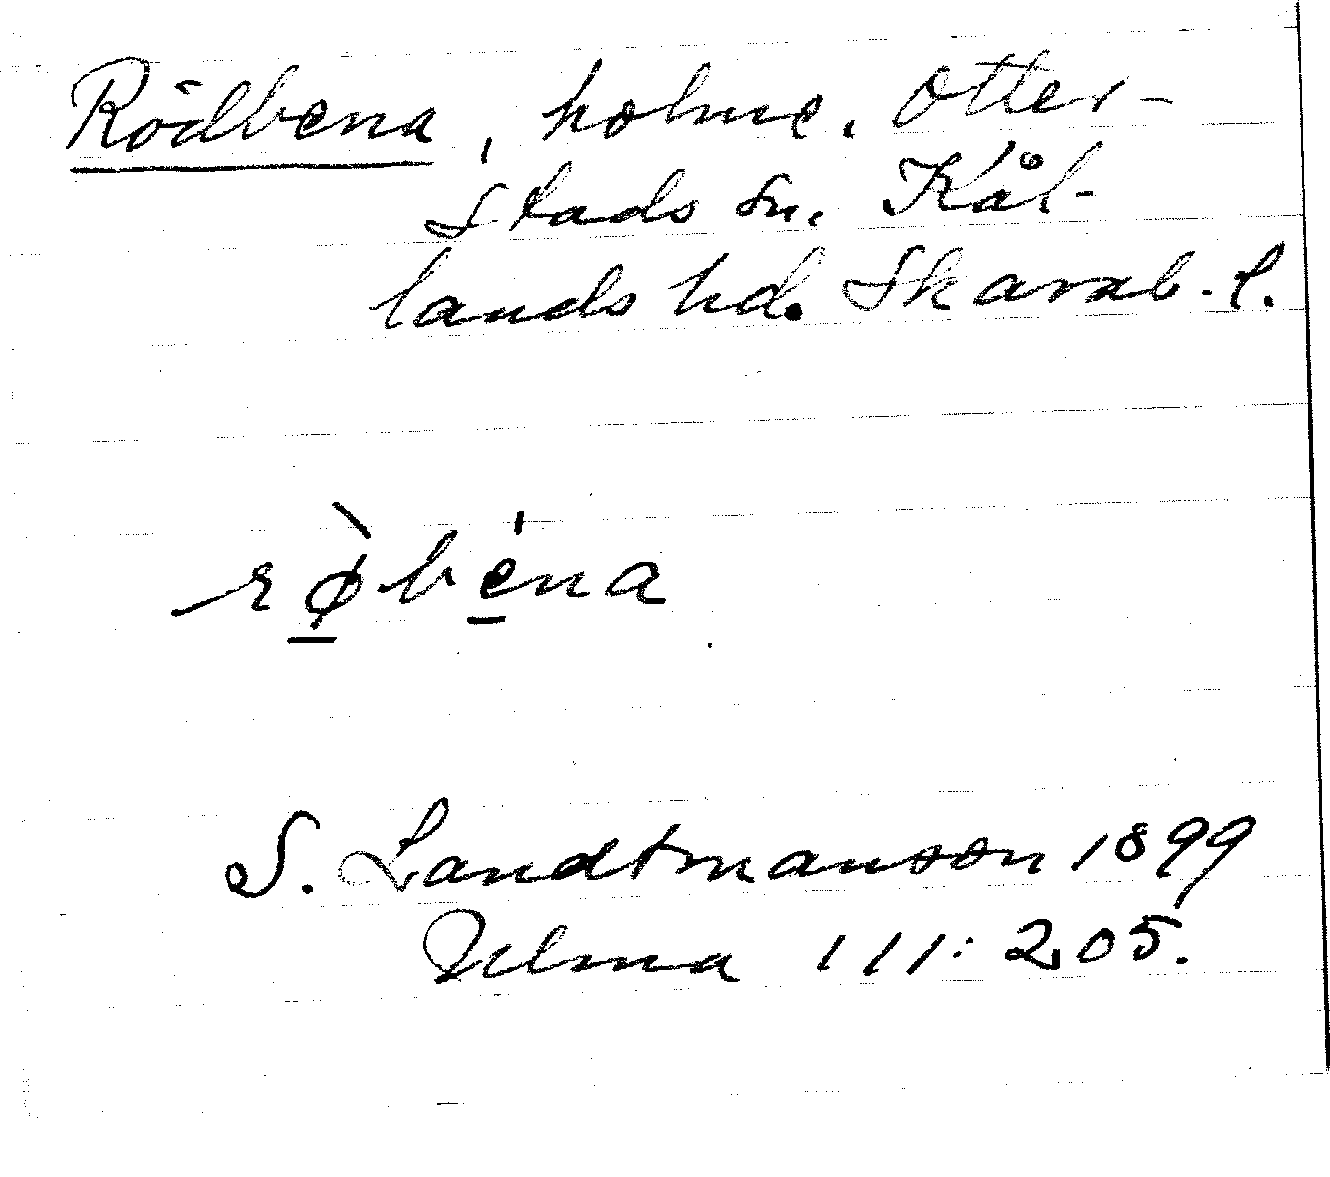 Rödbena, holme. Otter-
stads sn. Kål-
lands hd. Skarab. l.
rø̀bèna
S. Landtmanson 1899
Ulma 111:205.